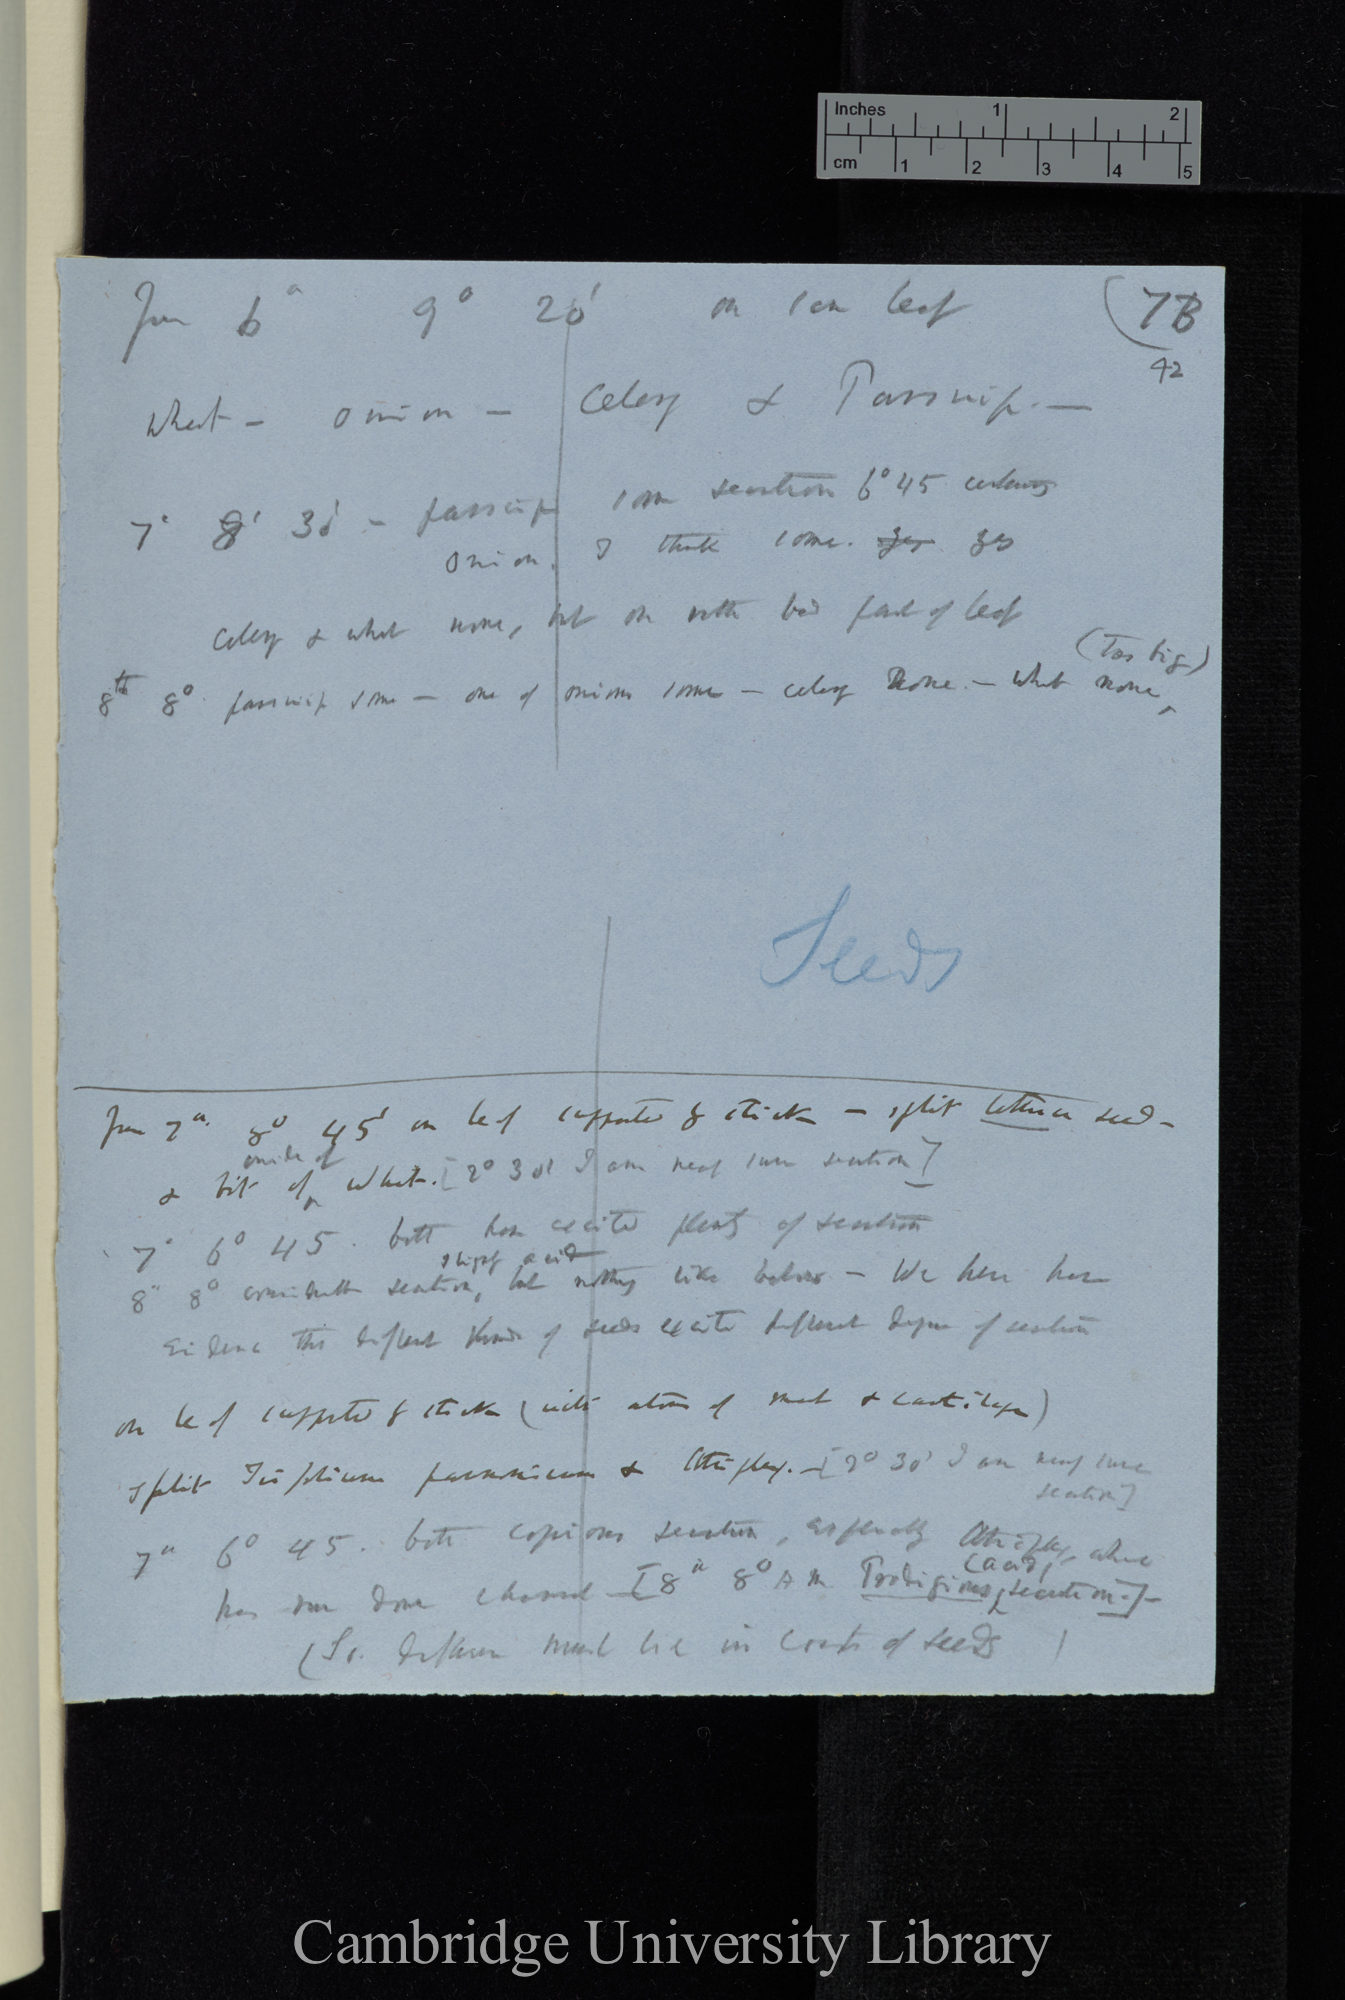 Inches 1 2
cm 1 2 3 4 5
June 6th 9° 20' on same leaf (7B
42
Wheat — Onion — Celery & Parsnip. —
7th 8° 30' — parsnip some secretion 6° 45
Onion. I think some. yes yes
Celery & wheat none, but on rather bad part of leaf
(Too big)
8th 8°. parsnip some — one of onions some — celery none. — wheat none,
Seeds
June 7th. 8° 45' on leaf supported by sticks — split lettuce seed —
inside of
& bit of wheat. [2° 30' I am nearly sure secretion]
7th 6° 45. both have excited plenty of secretion
slightly acid
8th 8° considerable secretion, but nothing like below — We here have
evidence that different kinds of seeds excite different degree of secretion
on leaf supported by sticks (with atoms of meat & cartilage)
split Trifolium & Atriplex. — [2° 30' I am nearly sure
secretion]
7th 6° 45. both copious secretion, especially Atriplex, where
(acid)
has run down channel — [8th 8° A m Prodigious secretion —] —
(So difference must lie in coats of seeds )
Cambridge University Library